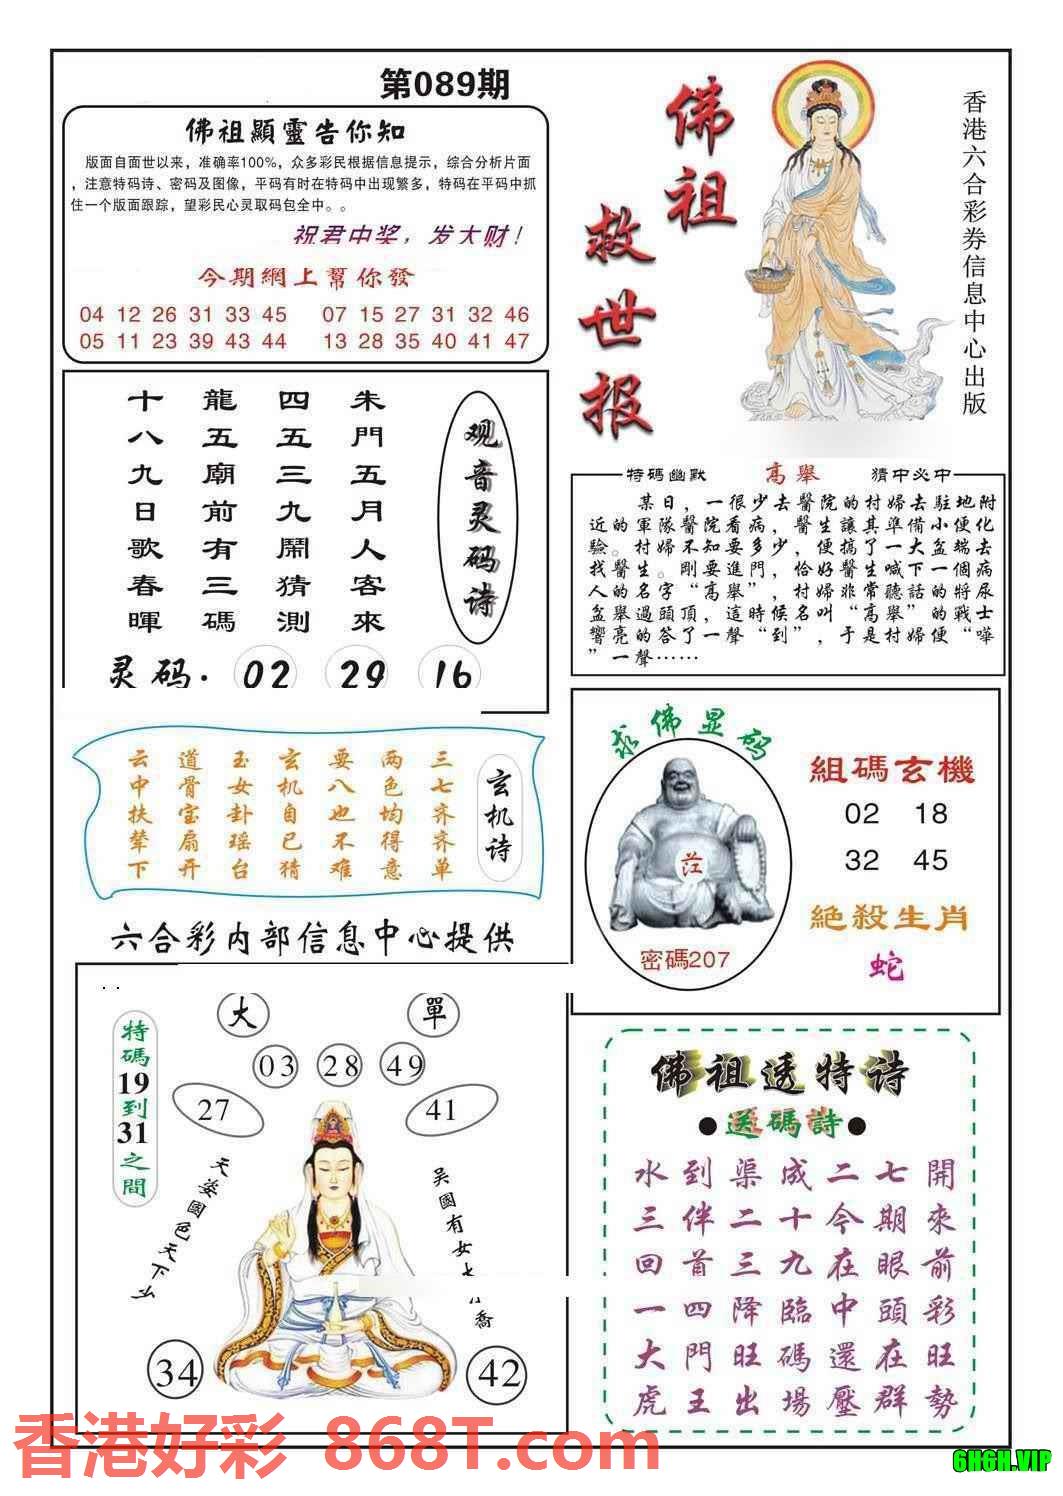 第089期
佛祖顯靈告你知
版面自面世以来，准确率100%，众多彩民根据信息提示，综合分析片面
，注意特码诗、密码及图像，平码有时在特码中出现繁多，特码在平码中抓
住一个版面跟踪，望彩民心灵取码包全中。。
祝君中奖，发大财！
今期網上幫你發
04 12 26 31 33 45 07 15 27 31 32 46
05 11 23 39 43 44 13 28 35 40 41 47
佛祖
救世报
香港六合彩券信息中心出版
观音灵码诗
朱門五月人客來
四五三九開猜測
龍五廟前有三碼
十八九日歌春暉
灵码. 02 29 16
特碼幽默 高舉 猜中必中
某日，一很少去醫院的村婦去駐地附
近的軍隊醫院看病，醫生讓其準備小便化
驗。村婦不知要多少，便搞了一大盆端去
找醫生。剛要進門，恰好醫生喊下一個病
人的名字“高舉”，村婦非常聽話的將尿
盆舉過頭頂，這時候名叫“高舉”的戰士
響亮的答了一聲“到”，于是村婦便“嘩
”一聲……
玄机诗
三七齐齐单
两色均得意
要八也不难
玄机自已猜
玉女卦瑶台
道骨宝扇开
云中扶辇下
六合彩内部信息中心提供
求佛显码
密碼207
組碼玄機
02 18
32 45
絕殺生肖
蛇
大 單
03 28 49
27 41
特碼19到31之間
天姿國色天下
吴國有女
喬
34 42
佛祖透特诗
●送碼詩●
水到渠成二七開
三伴二十今期來
回首三九在眼前
一四降臨中頭彩
大門旺碼還在旺
虎王出場壓群勢
香港好彩 868T.com
6H6H.VIP